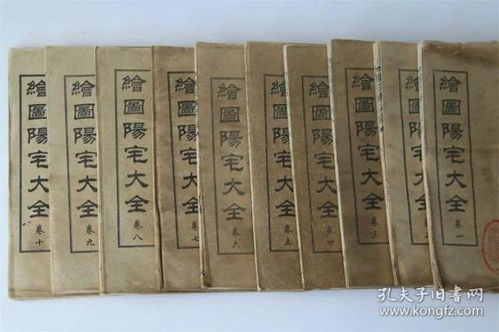 繪圖陽宅大全 卷一
繪圖陽宅大全
繪圖陽宅大全 卷三
繪圖陽宅大全 卷四
繪圖陽宅大全 卷五
繪圖陽宅大全 卷六
繪圖陽宅大全 卷七
繪圖陽宅大全 卷八
繪圖陽宅大全 卷九
繪圖陽宅大全 卷十
孔夫子旧书网
www.kongfz.com